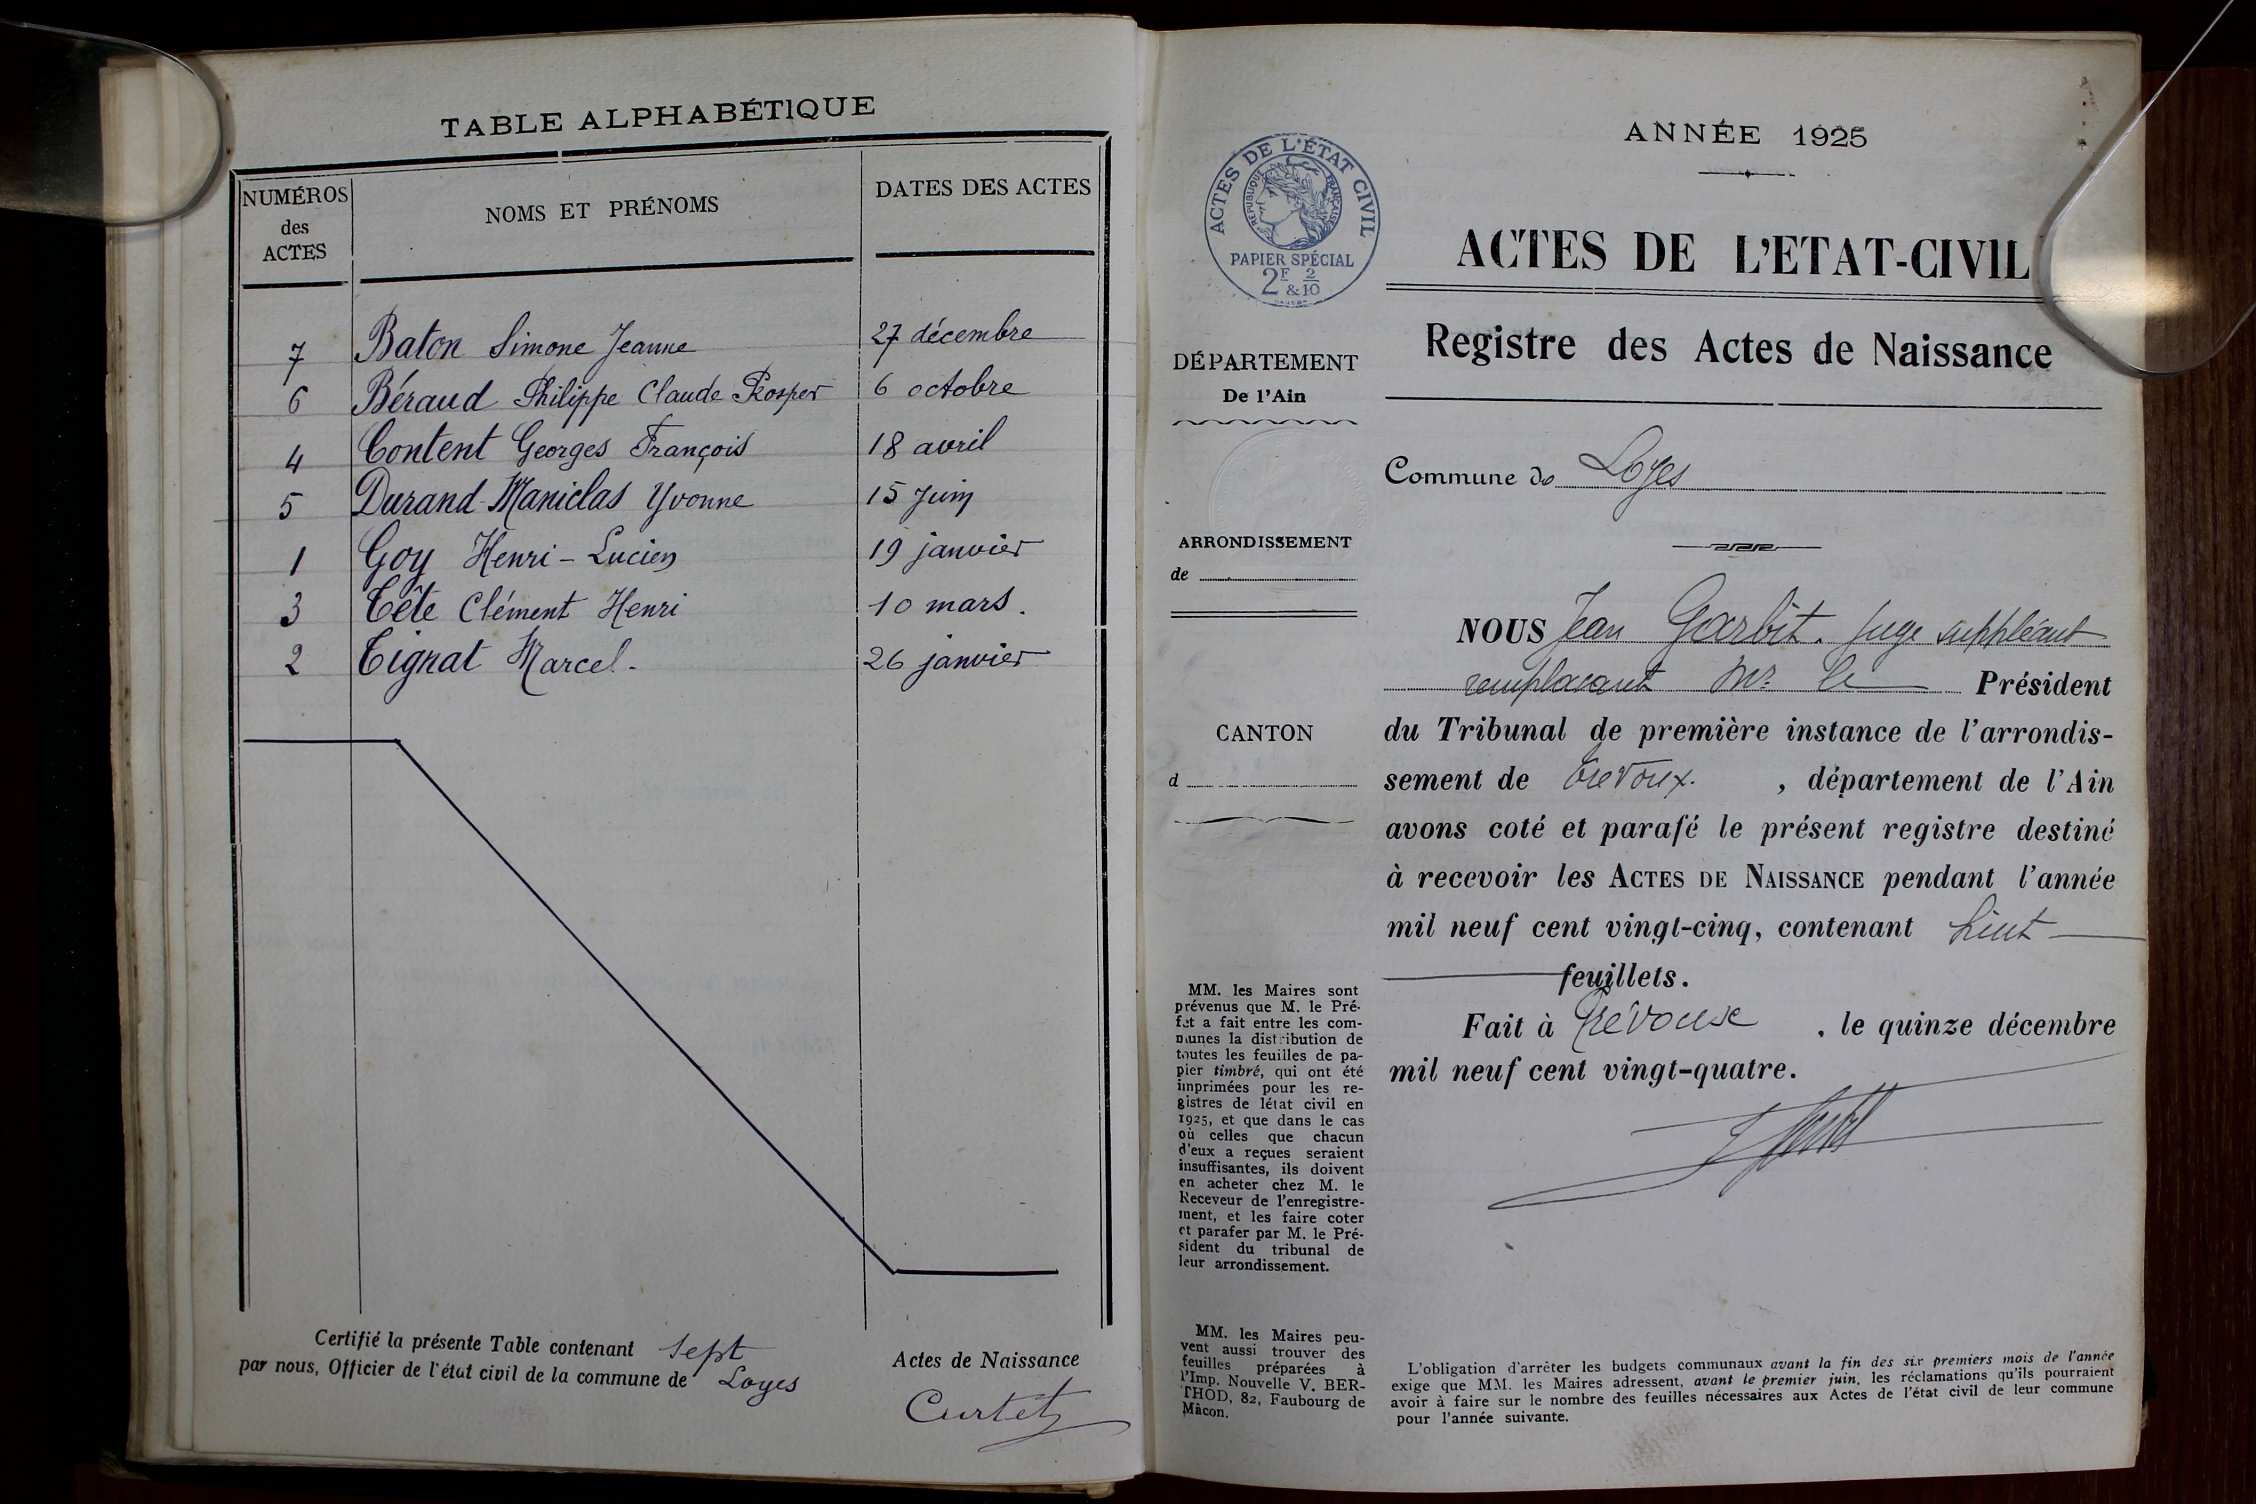 TABLE ALPHABÉTIQUE
NUMÉROS
des
ACTES
NOMS ET PRÉNOMS
DATES DES ACTES
7 Baton Simone Jeanne 27 décembre
6 Béraud Philippe Claude Prosper 6 octobre
4 Content Georges François 18 avril
5 Durand-Maniclas Yvonne 15 Juin
1 Goy Henri-Lucien 19 janvier
3 Tête Clément Henri 10 mars.
2 Tignat Marcel. 26 janvier
Certifié la présente Table contenant sept
Actes de Naissance
par nous, Officier de l'état civil de la commune de Loyes
Curtet
ANNÉE 1925
ACTES DE L'ÉTAT CIVIL
RÉPUBLIQUE FRANÇAISE
PAPIER SPÉCIAL
2F & 2/10
ACTES DE L'ETAT-CIVIL
Registre des Actes de Naissance
DÉPARTEMENT
De l'Ain
Commune de Loyes
ARRONDISSEMENT
de
CANTON
d
NOUS Jean Garbit. juge suppléant
remplaçant Mr. le Président
du Tribunal de première instance de l'arrondis-
sement de Trévoux. , département de l'Ain
avons coté et parafé le présent registre destiné
à recevoir les ACTES DE NAISSANCE pendant l'année
mil neuf cent vingt-cinq, contenant huit
feuillets.
Fait à Trévoux , le quinze décembre
mil neuf cent vingt-quatre.
MM. les Maires sont
prévenus que M. le Pré-
fet a fait entre les com-
munes la distribution de
toutes les feuilles de pa-
pier timbré, qui ont été
imprimées pour les re-
gistres de létat civil en
1925, et que dans le cas
où celles que chacun
d'eux a reçues seraient
insuffisantes, ils doivent
en acheter chez M. le
Receveur de l'enregistre-
ment, et les faire coter
et parafer par M. le Pré-
sident du tribunal de
leur arrondissement.
MM. les Maires peu-
vent aussi trouver des
feuilles préparées à
l'Imp. Nouvelle V. BER-
THOD, 82, Faubourg de
Mâcon.
L'obligation d'arrêter les budgets communaux avant la fin des six premiers mois de l'année
exige que MM. les Maires adressent, avant le premier juin, les réclamations qu'ils pourraient
avoir à faire sur le nombre des feuilles nécessaires aux Actes de l'état civil de leur commune
pour l'année suivante.